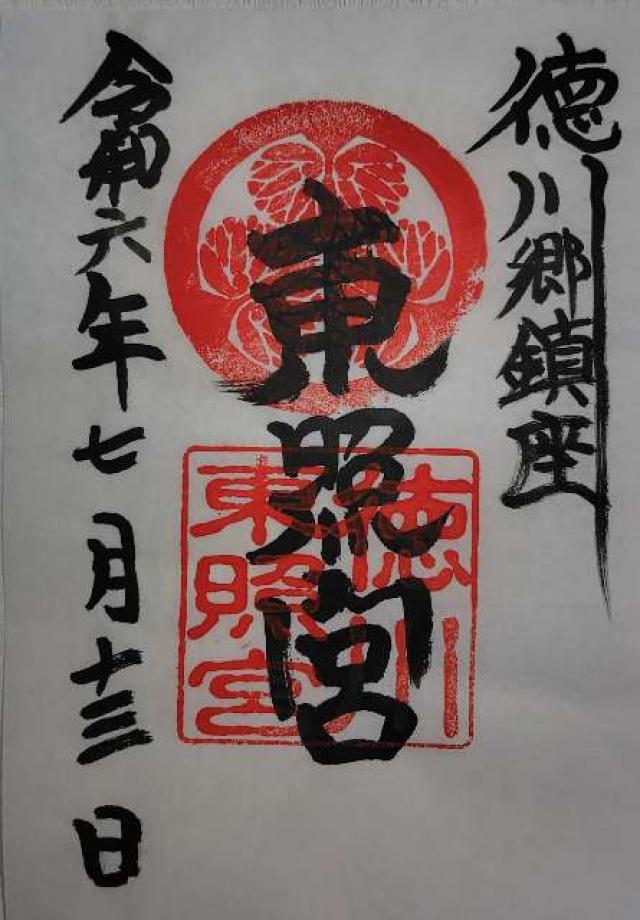 徳川郷鎮座
東照宮
徳川
東照宮
令和六年七月十三日